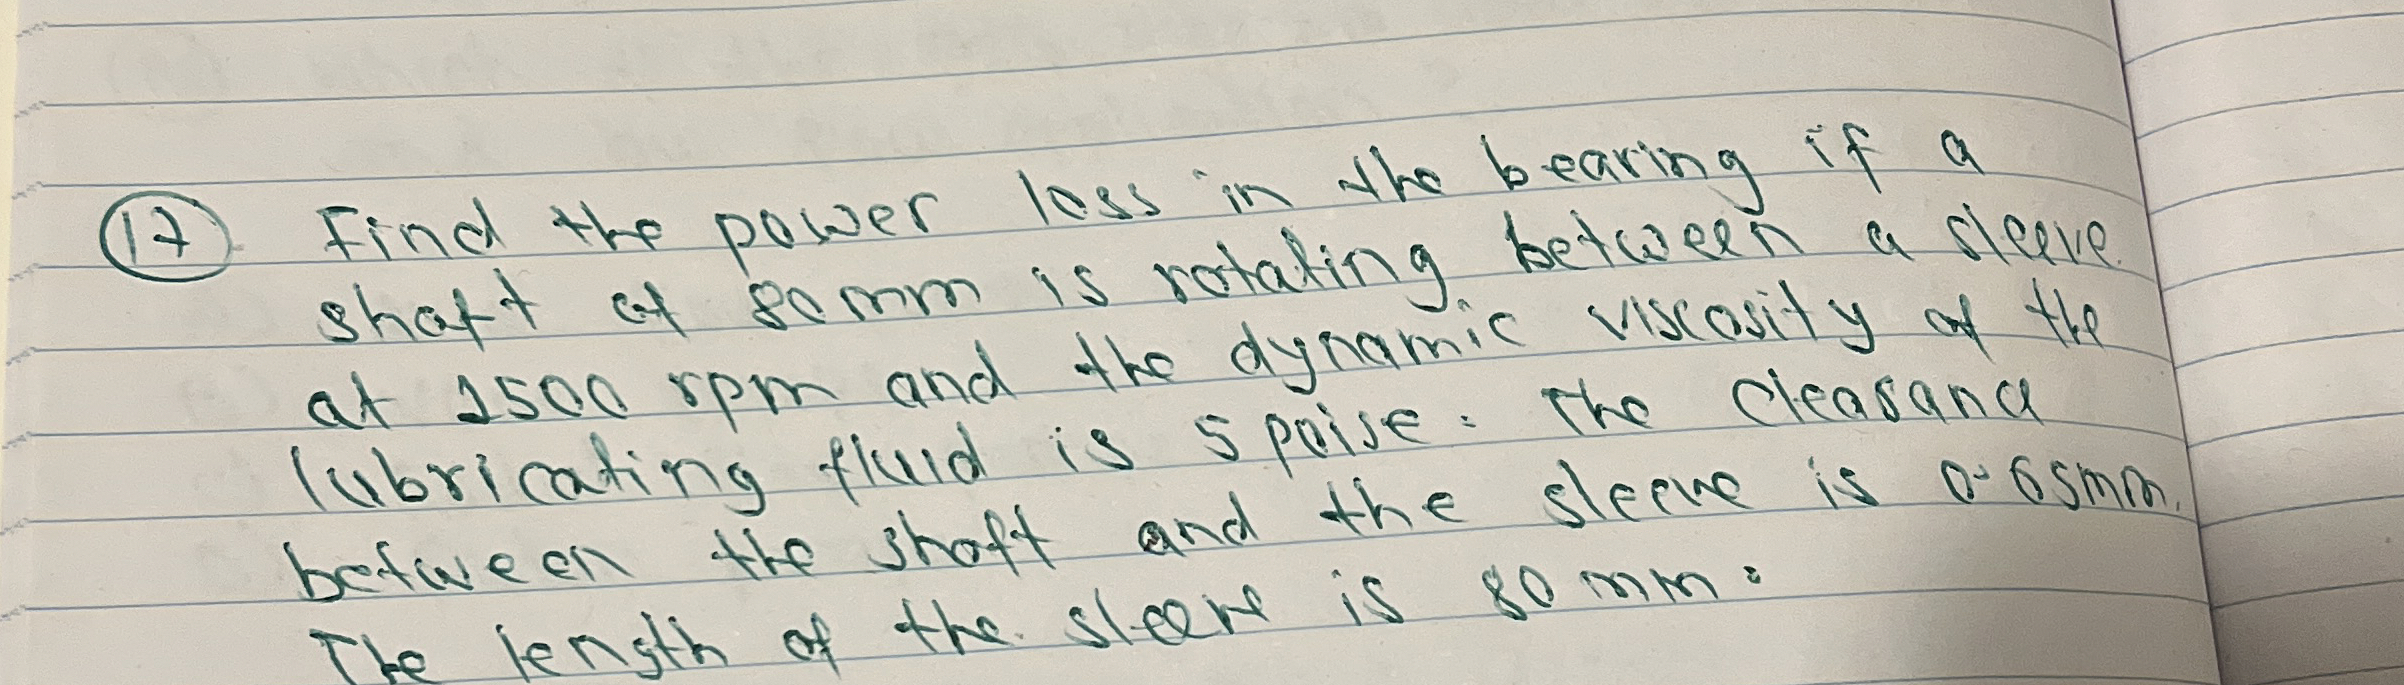 17 Find the power loss in the bearing if a
shaft of 80mm is rotating between a sleeve
at 1500 rpm and the dynamic viscosity of the
lubricating fluid is 5 poise. The Cleasana
between the shaft and the sleeve is 0.65mm.
The length of the sleeve is 80 mm.